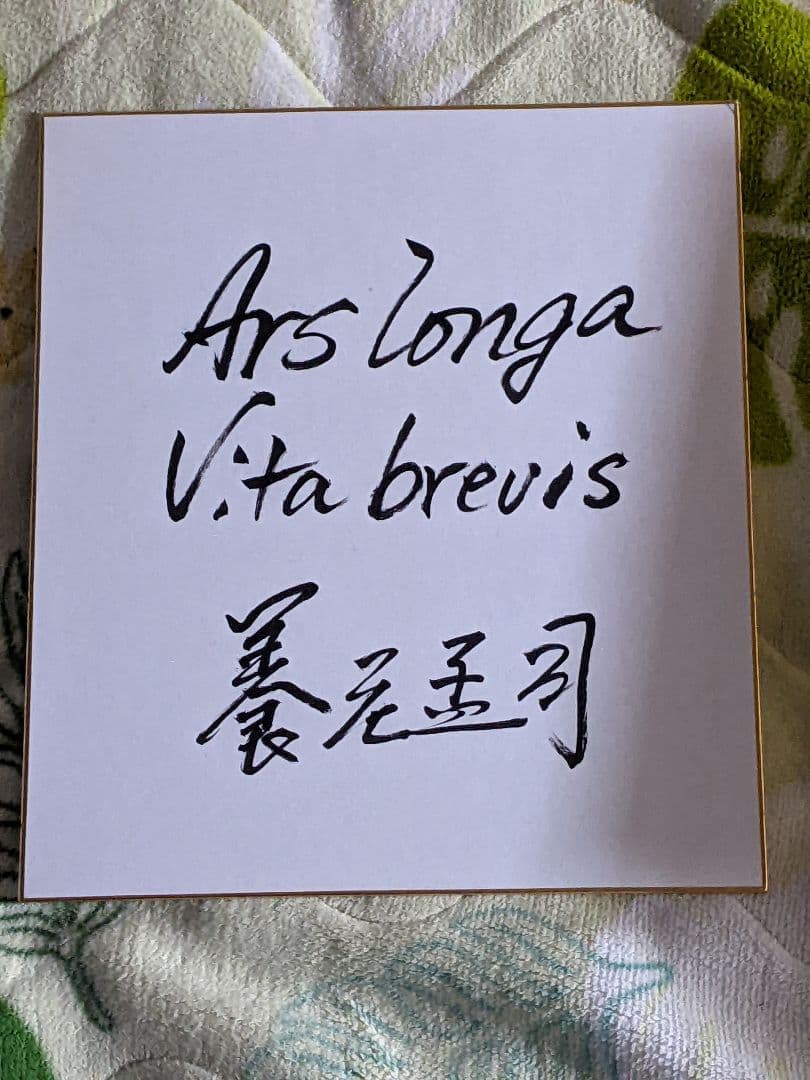 Ars longa
Vita brevis
養老孟司